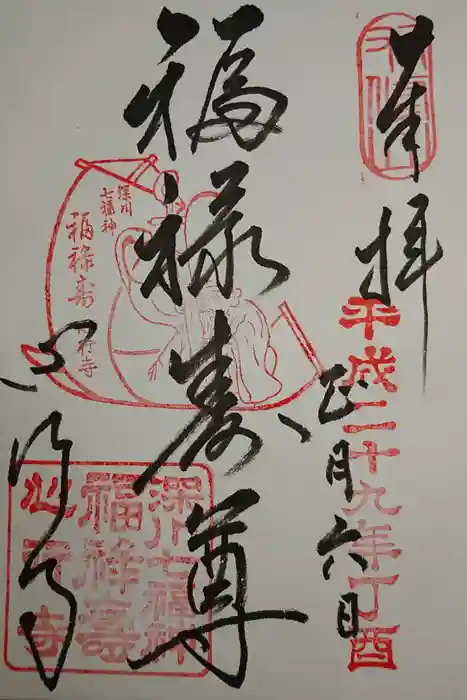 奉拝
平成二十九年丁酉
正月六日
福禄寿尊
深川
七福神
福禄寿
心行寺
深川七福神
福禄寿
心行寺
心行寺